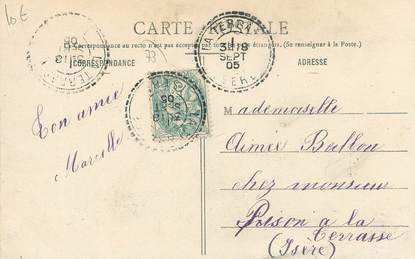 10€
CARTE POSTALE
La Correspondance au recto n'est pas acceptée par tous les pays étrangers. (Se renseigner à la Poste.)
CORRESPONDANCE
ADRESSE
LA TERRASSE
3 18
SEPT
05
ISERE
Ton amie
Marcelle
Mademoiselle
Aimée Ballon
chez monsieur
Prison a la
Terrasse
(Isère)